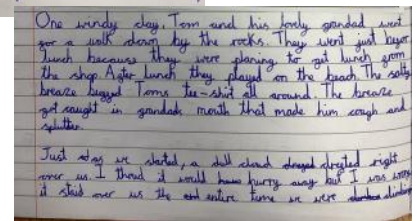 One windy day, Tom and his lovely grandad went
for a walk down by the rocks. They went just befor
lunch because they were planing to get lunch from
the shop. After lunch they played on the beach. The salty
breaze Toms tee-shirt all around. The breaze
got caught in grandads mouth that made him cough and
splutter.
Just as we started, a dull cloud drifted right
over us. I thoud it would hurry away but I was wrong
it staid over us the entire time we were